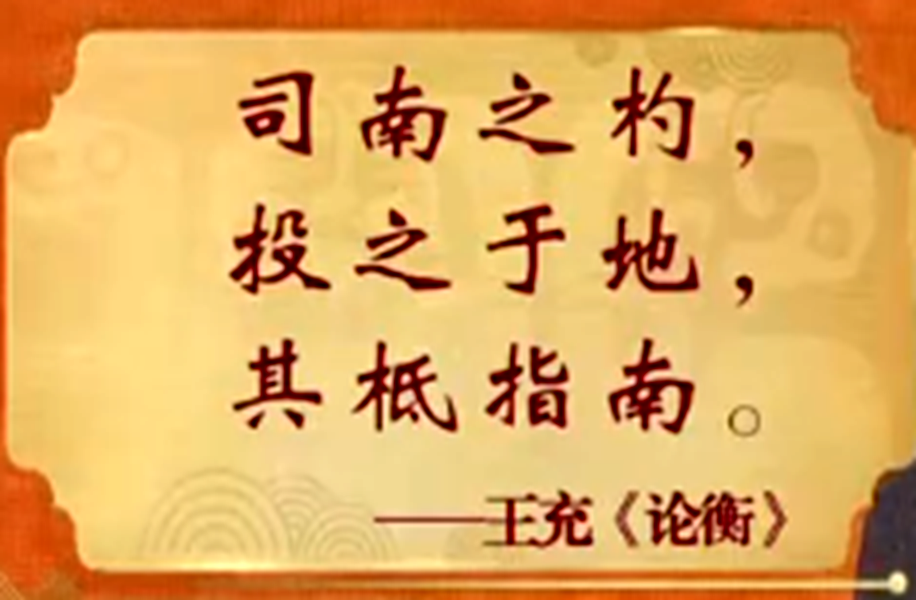 司南之杓，
投之于地，
其柢指南。
——王充《论衡》